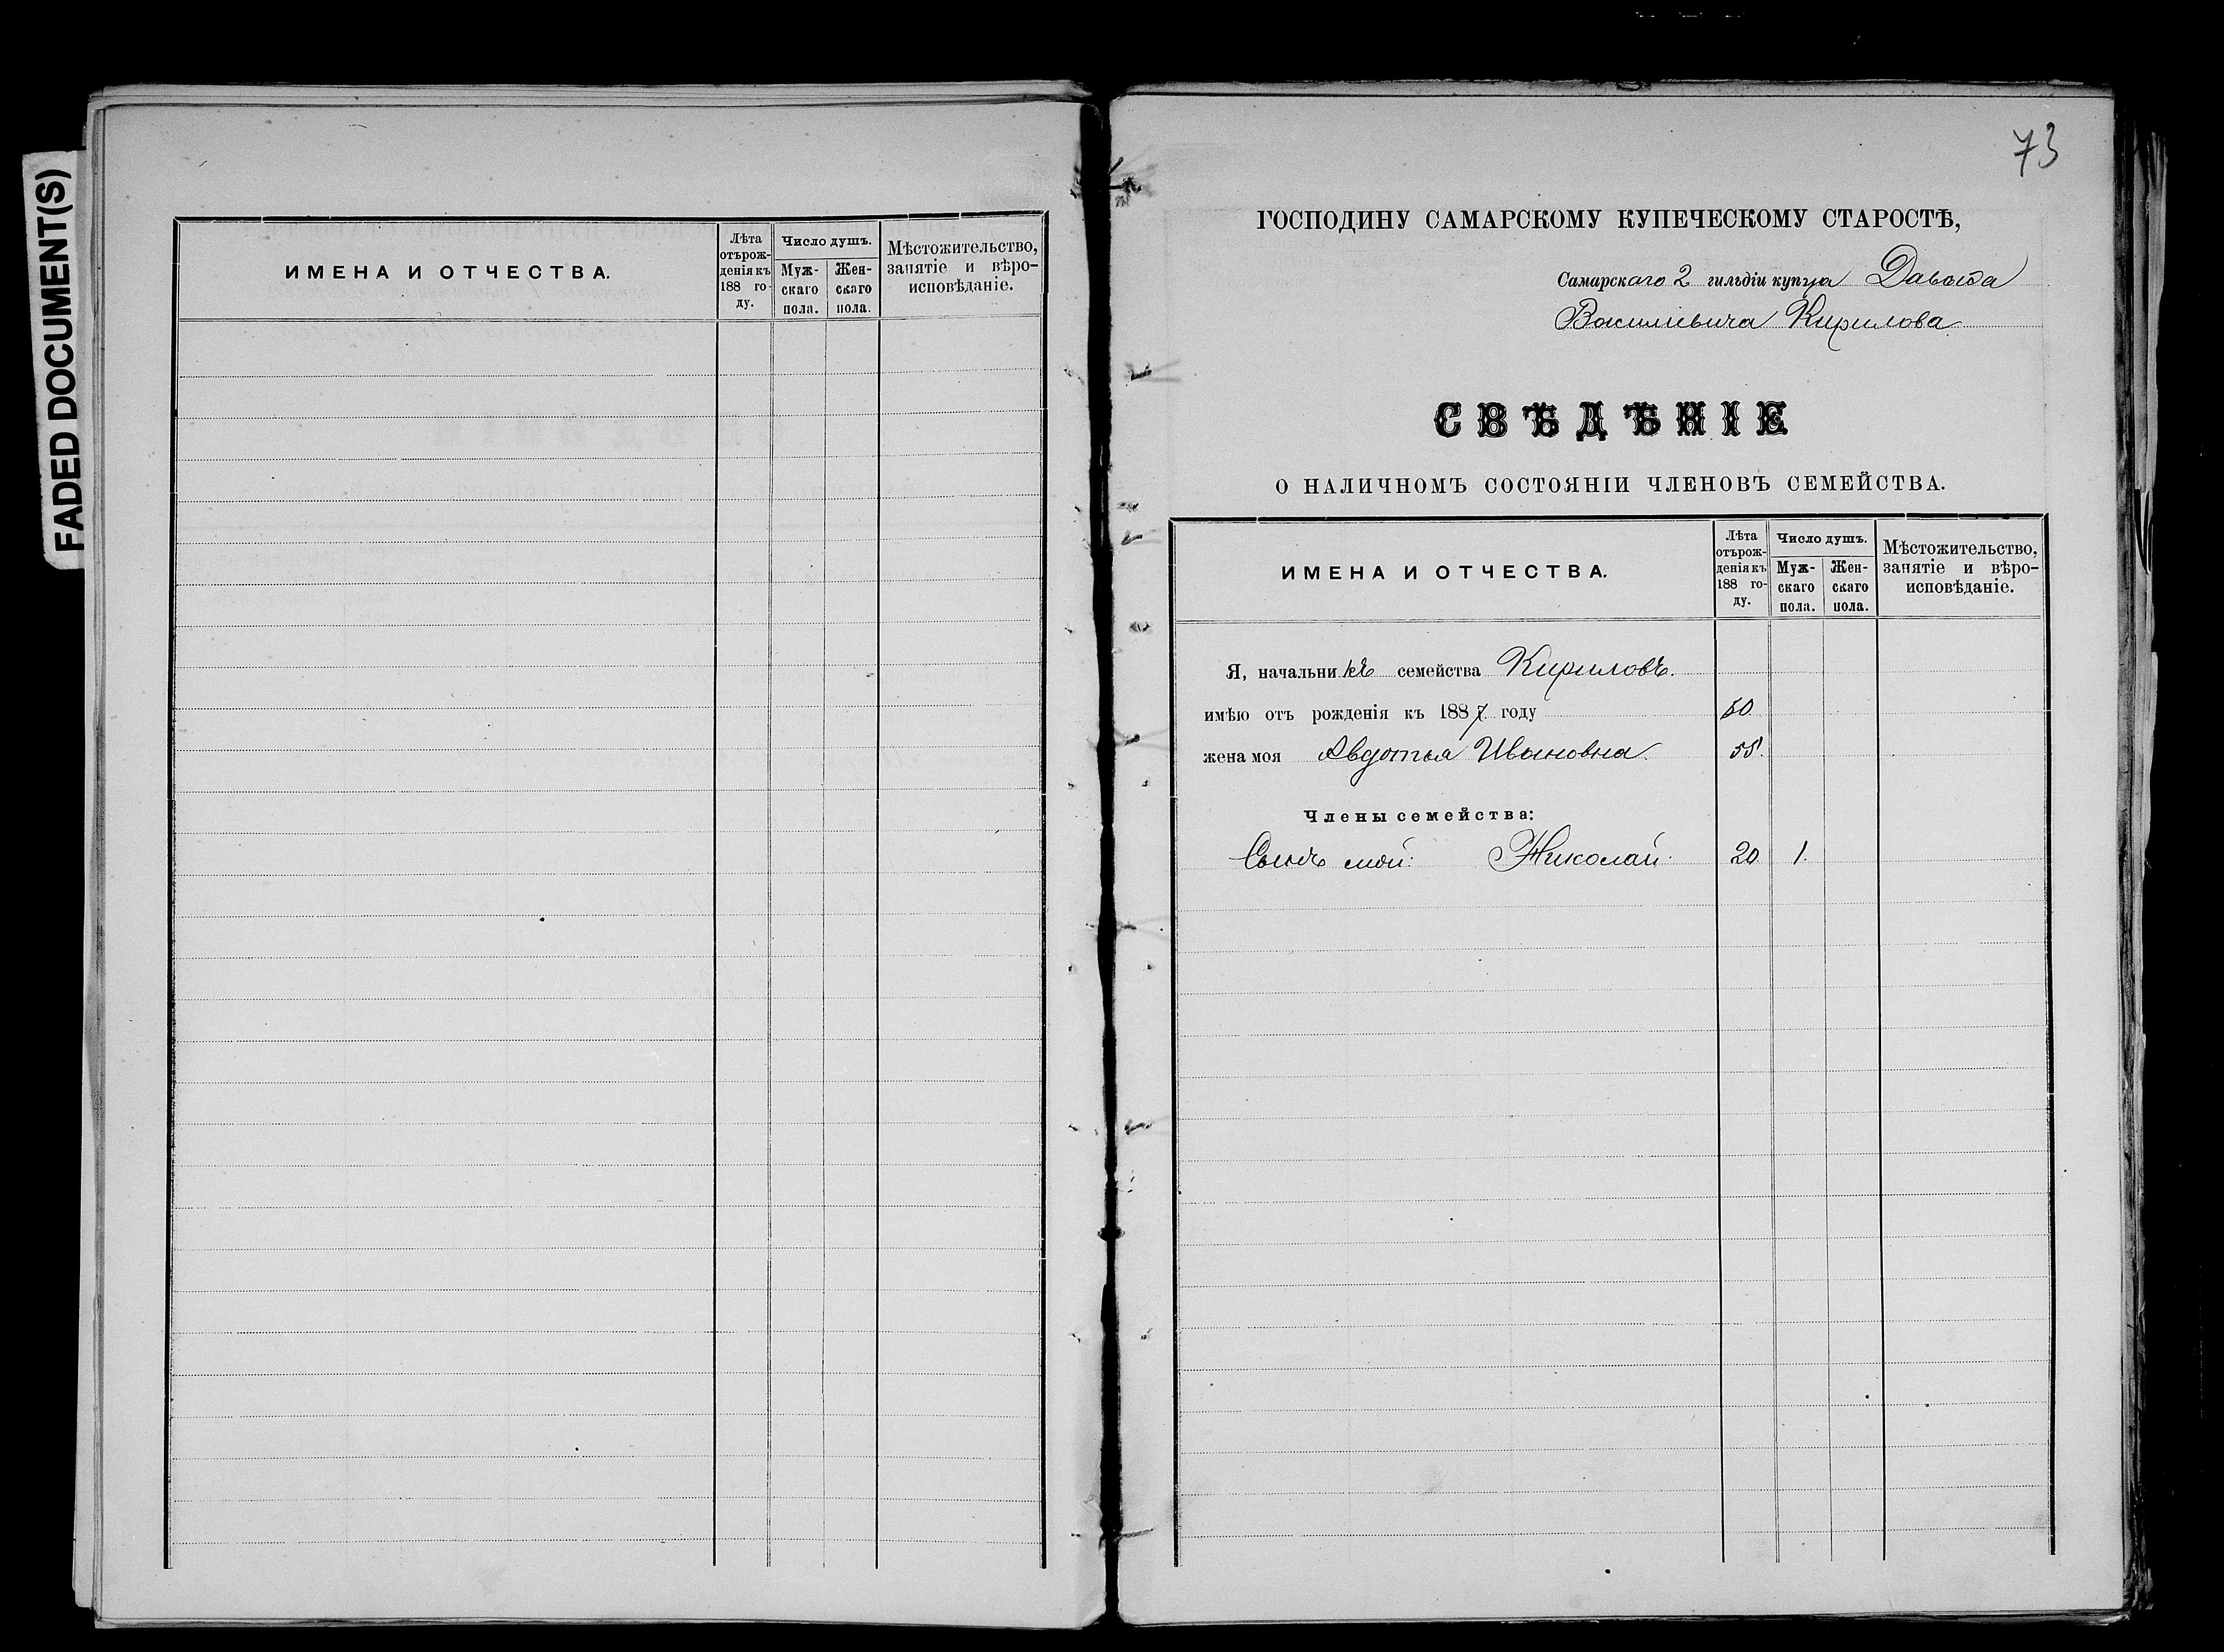 FADED DOCUMENT(S)
ИМЕНА И ОТЧЕСТВА.
Лѣта отъ рожденія къ 188 году.
Число душъ.
Мужскаго пола.
Женскаго пола.
Мѣстожительство, занятіе и вѣроисповѣданіе.
73
ГОСПОДИНУ САМАРСКОМУ КУПЕЧЕСКОМУ СТАРОСТѢ,
Самарскаго 2 гильдіи купца Давыда
Васильевича Кирилова
СВѢДѢНІЕ
О НАЛИЧНОМЪ СОСТОЯНІИ ЧЛЕНОВЪ СЕМЕЙСТВА.
ИМЕНА И ОТЧЕСТВА.
Лѣта отъ рожденія къ 188 году.
Число душъ.
Мужскаго пола.
Женскаго пола.
Мѣстожительство, занятіе и вѣроисповѣданіе.
Я, начальникъ семейства Кириловъ.
имѣю отъ рожденія къ 1887 году 60.
жена моя Авдотья Ивановна. 55.
Члены семейства:
Сынъ мой: Николай. 20 1.